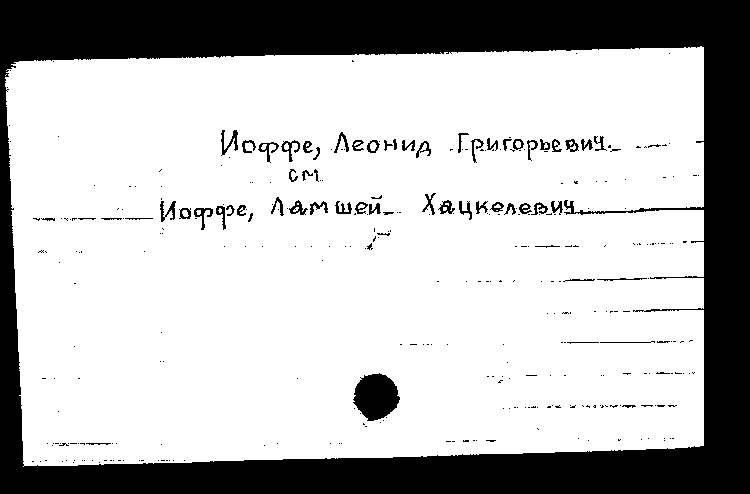 Иоффе, Леонид Григорьевич.
см
Иоффе, Ламшей Хацкелевич.